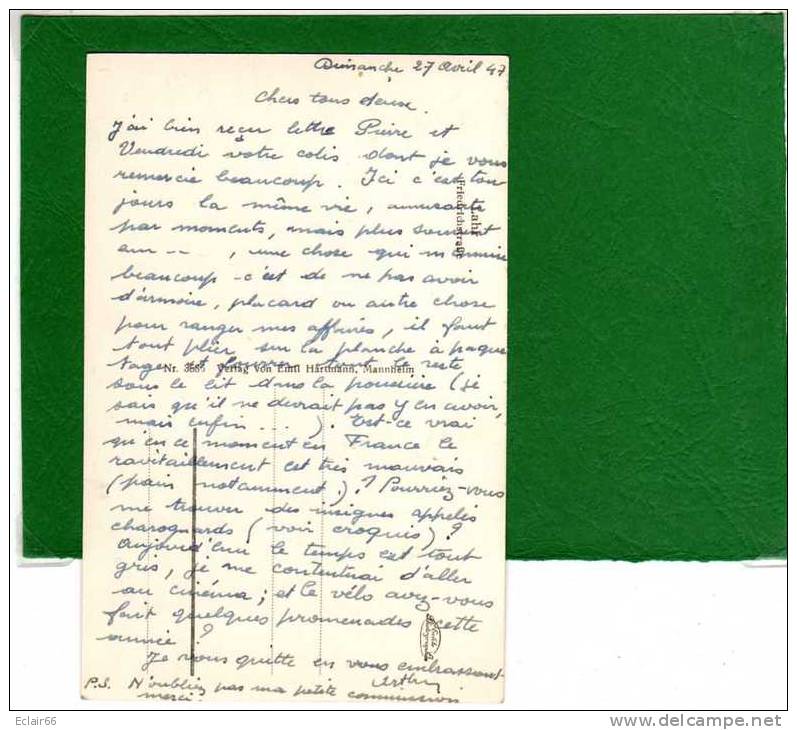 Dimanche 27 Avril 47
Chers tous deux.
J'ai bien reçu lettre Pierre et
Vendredi votre colis dont je vous
remercie beaucoup. Ici c'est tou-
jours la même vie, amusante
par moments, mais plus souvent
, une chose qui
beaucoup c'est de ne pas avoir
d'armoire, placard ou autre chose
pour ranger mes affaires, il faut
tout plier sur la planche à paque
tage et fourrer tout le reste
sous le lit dans la poussière (je
sais qu'il ne devrait pas y en avoir,
mais enfin ...). Est-ce vrai
qu'en ce moment en France le
ravitaillement est très mauvais
(pain notamment)? Pourriez-vous
me trouver des insignes appelés
charognards (voir croquis)?
Aujourd'hui le temps est tout
gris, je me contenterai d'aller
au cinéma; et le vélo avez-vous
fait quelques promenades cette
année?
Je vous quitte en vous embrassant
Arthur
P.S. N'oubliez pas ma petite commission
merci.
Lahr
Friedrichstraße
Nr. 3685 Verlag von Emil Hartmann, Mannheim
Eclair66
www.delcampe.net